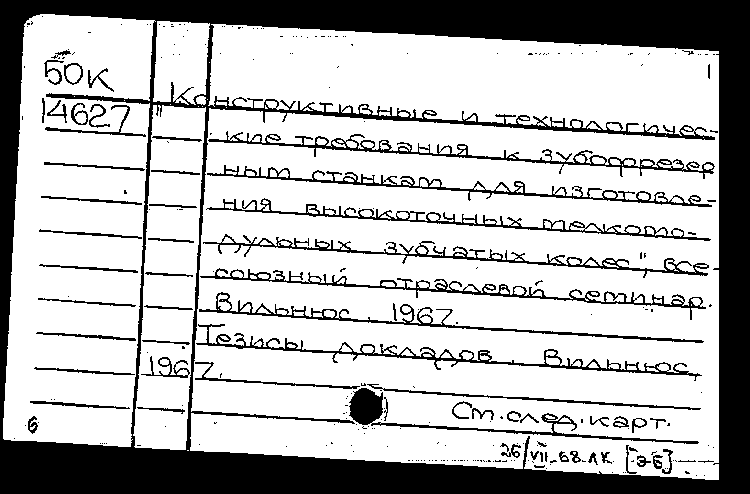 1
50К
14627
"Конструктивные и технологичес-
кие требования к зубофрезер
ным станкам для изготовле-
ния высокоточных мелкомо-
дульных зубчатых колес", все-
союзный отраслевой семинар.
Вильнюс. 1967.
Тезисы докладов. Вильнюс,
1967.
См. след. карт.
6
26/VII-68 ЛК [Э-Б]